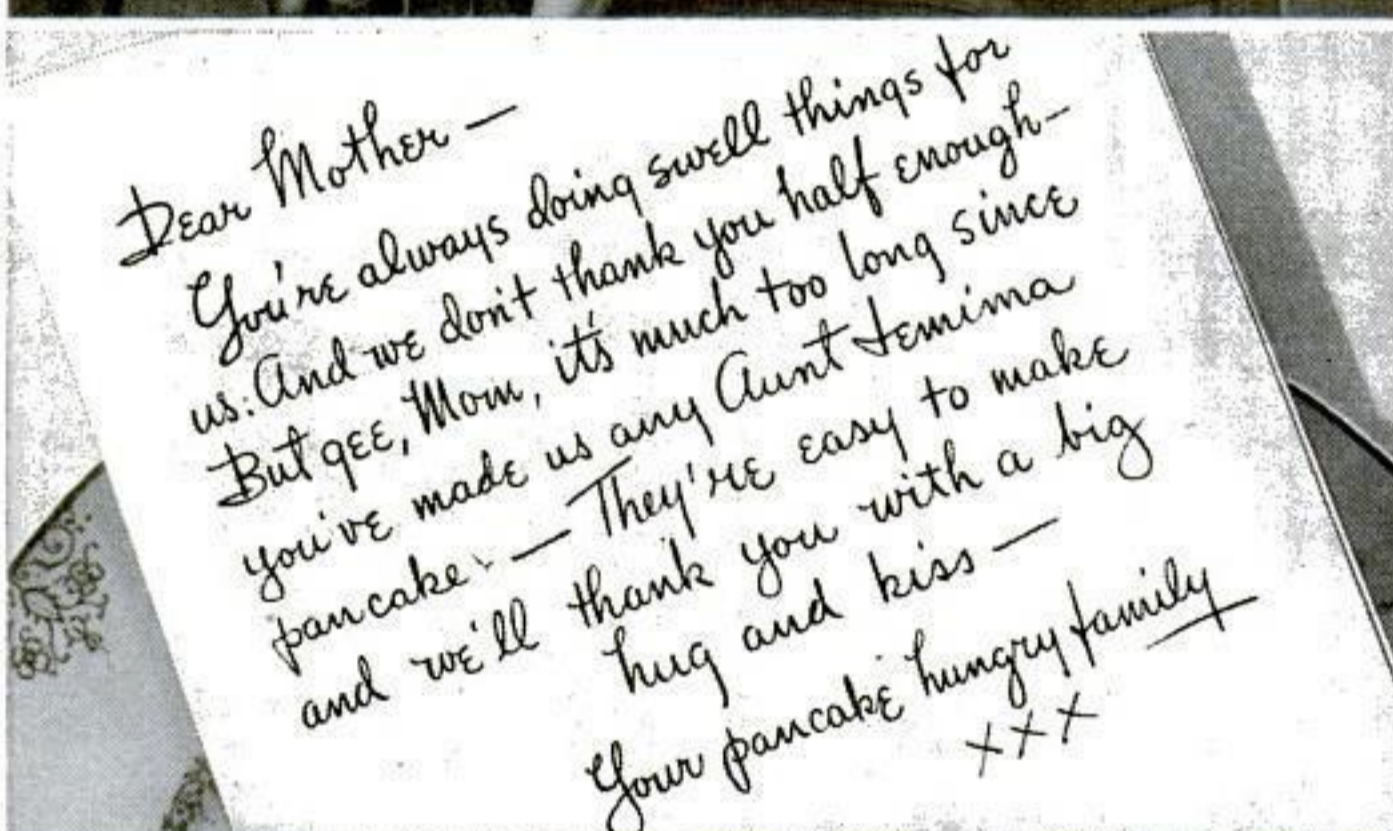 Dear Mother —
You're always doing swell things for
us. And we don't thank you half enough—
But gee, Mom, it's much too long since
you've made us any Aunt Jemima
pancakes — They're easy to make
and we'll thank you with a big
hug and kiss —
Your pancake hungry family
xxx